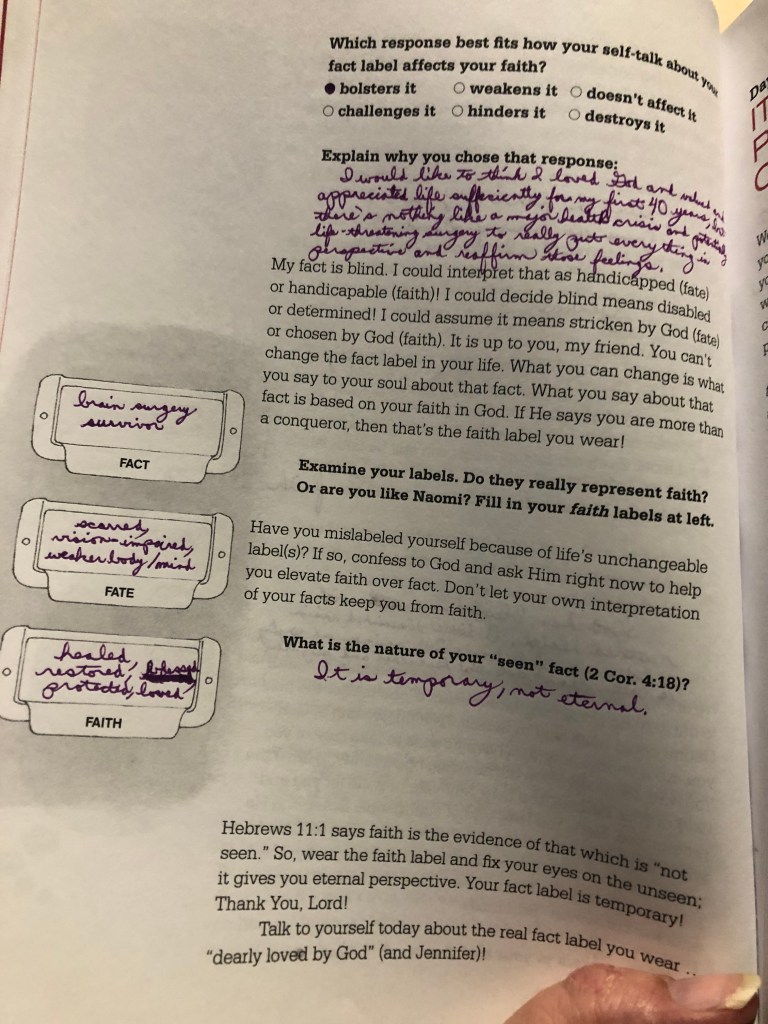 Which response best fits how your self-talk about your
fact label affects your faith?
● bolsters it ○ weakens it ○ doesn't affect it
○ challenges it ○ hinders it ○ destroys it
Explain why you chose that response:
I would like to think I loved God and valued and
appreciated life sufficiently for my first 40 years, but
there's nothing like a major health crisis and potentially
life-threatening surgery to really put everything in
perspective and reaffirm those feelings.
My fact is blind. I could interpret that as handicapped (fate)
or handicapable (faith)! I could decide blind means disabled
or determined! I could assume it means stricken by God (fate)
or chosen by God (faith). It is up to you, my friend. You can't
change the fact label in your life. What you can change is what
you say to your soul about that fact. What you say about that
fact is based on your faith in God. If He says you are more than
a conqueror, then that's the faith label you wear!
brain surgery
survivor
FACT
Examine your labels. Do they really represent faith?
Or are you like Naomi? Fill in your faith labels at left.
scarred,
vision-impaired,
weaker body/mind
FATE
Have you mislabeled yourself because of life's unchangeable
label(s)? If so, confess to God and ask Him right now to help
you elevate faith over fact. Don't let your own interpretation
of your facts keep you from faith.
healed,
restored, blessed
protected, loved
FAITH
What is the nature of your "seen" fact (2 Cor. 4:18)?
It is temporary, not eternal.
Hebrews 11:1 says faith is the evidence of that which is "not
seen." So, wear the faith label and fix your eyes on the unseen;
it gives you eternal perspective. Your fact label is temporary!
Thank You, Lord!
Talk to yourself today about the real fact label you wear ..
"dearly loved by God" (and Jennifer)!